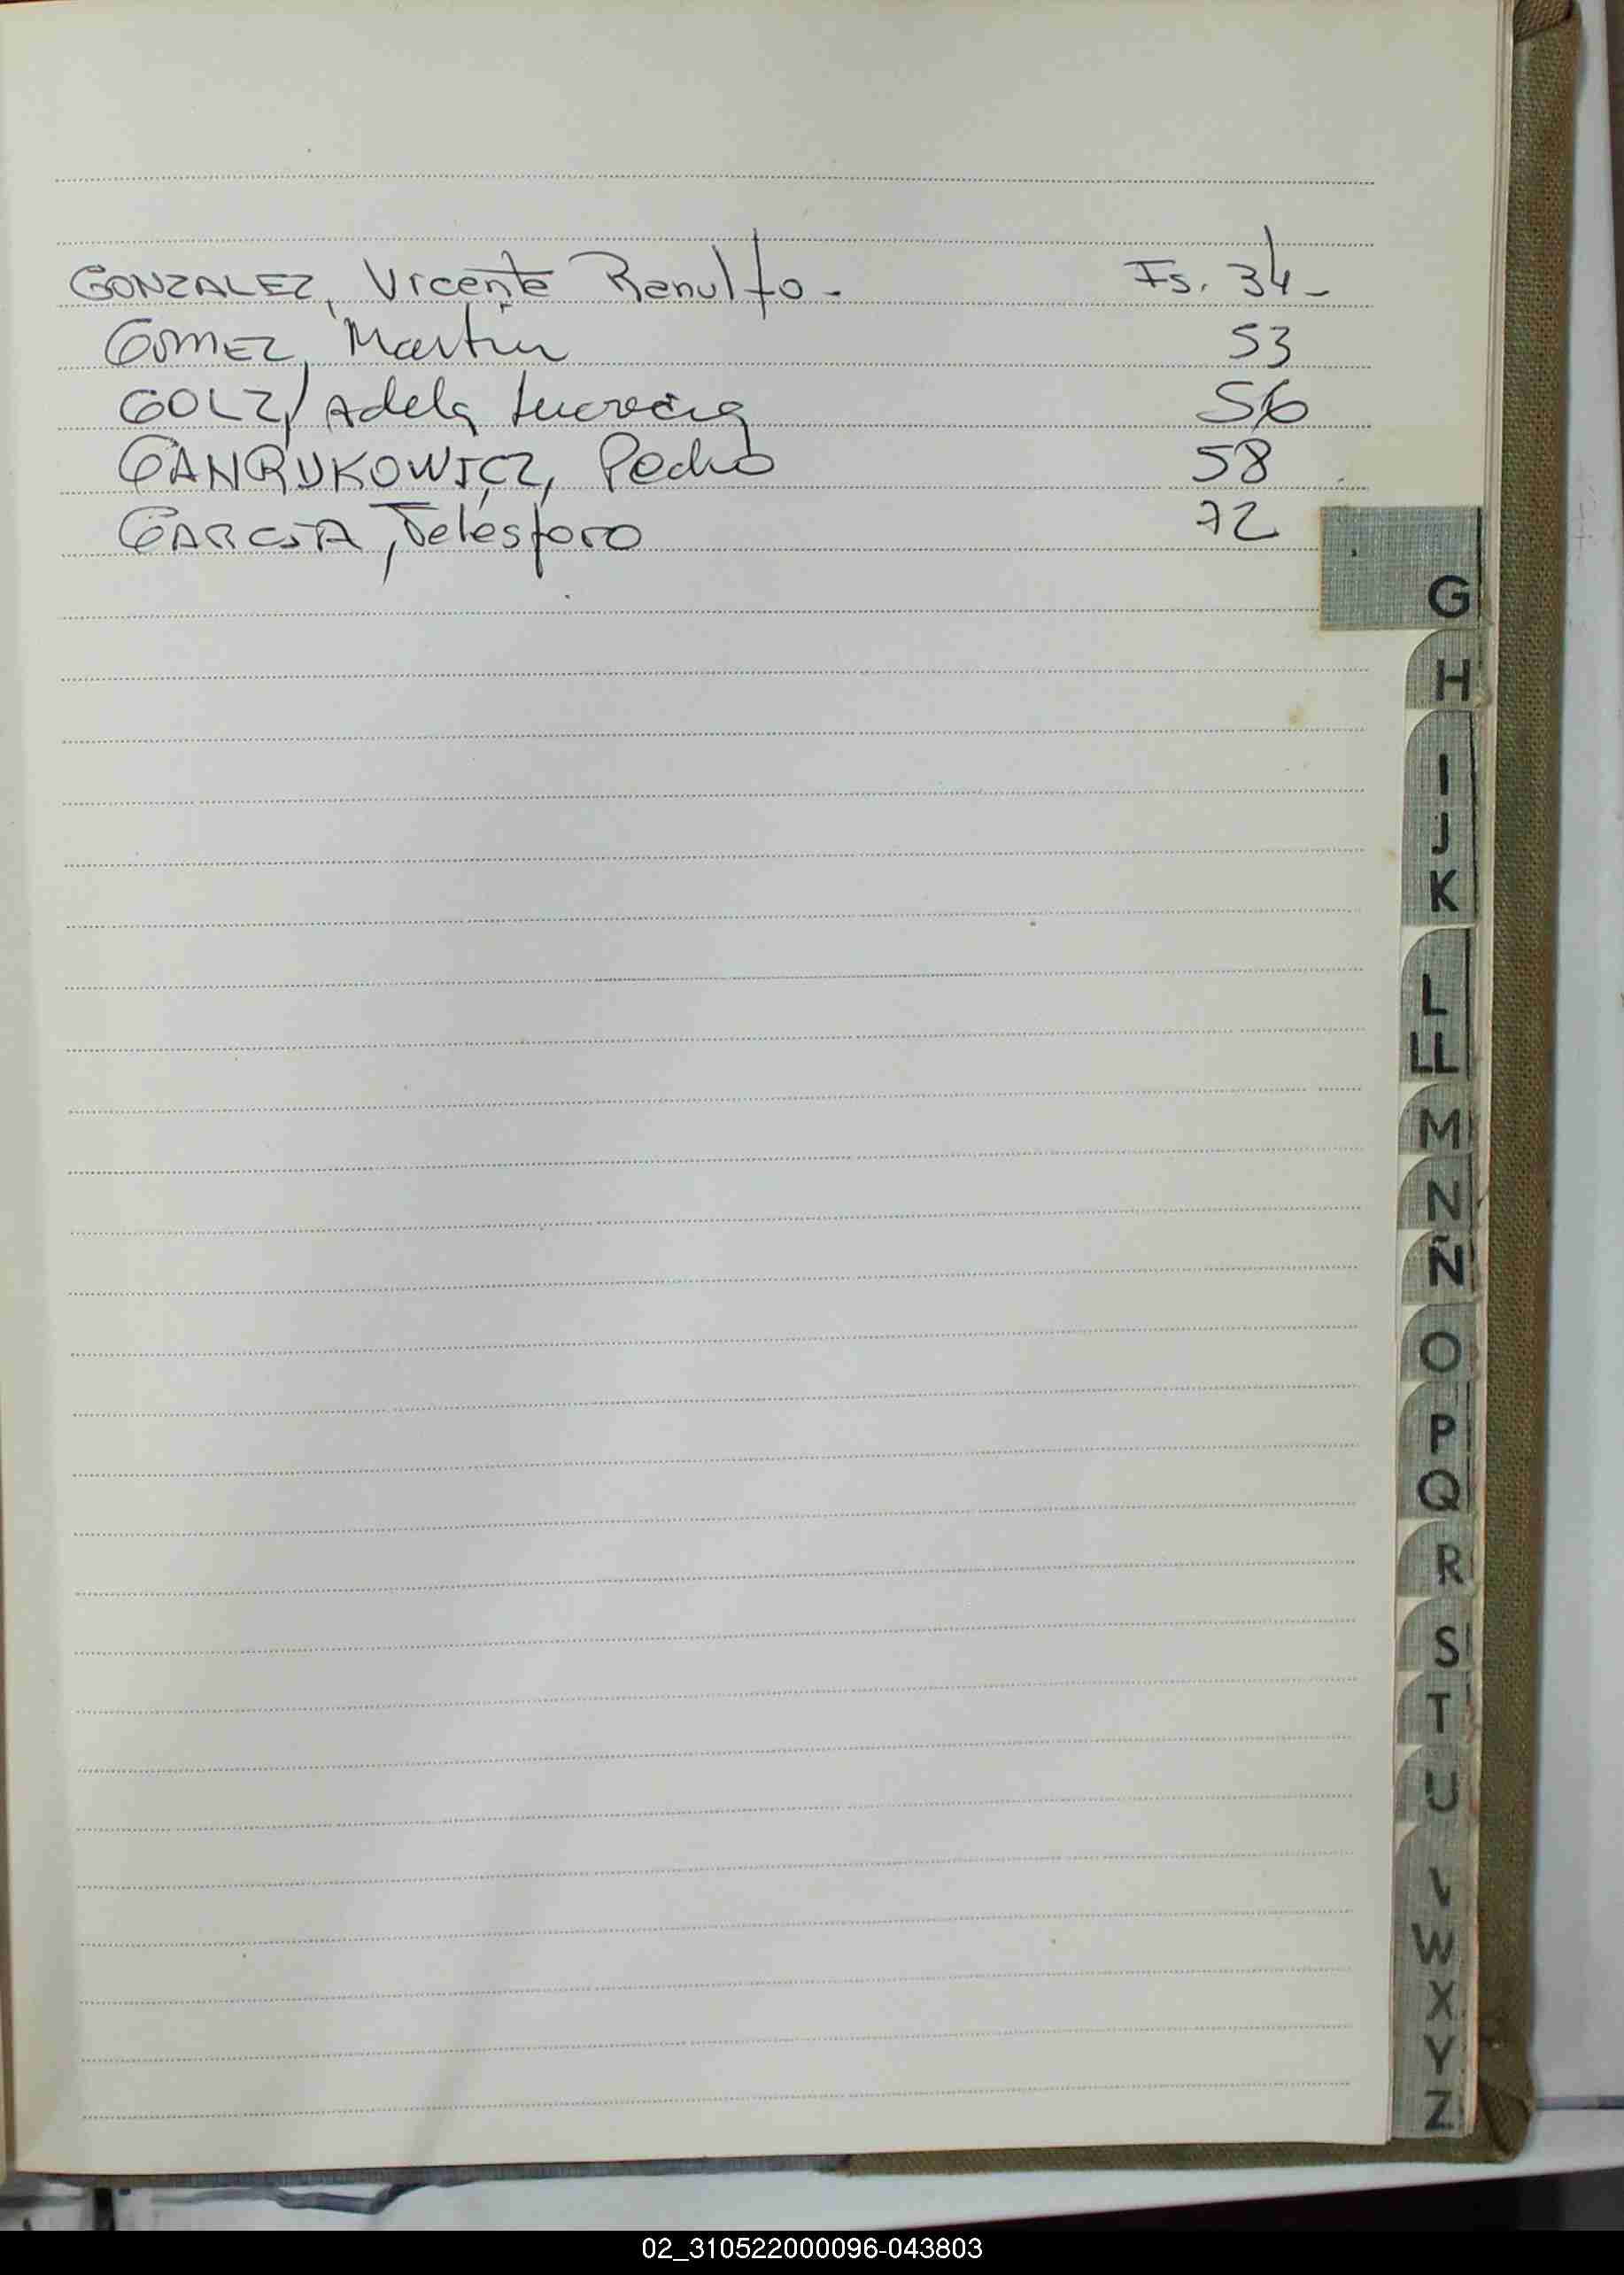 GONZALEZ, Vicente Ranulfo - Fs. 34 -
GOMEZ, Martin 53
GOLZ, Adela Lucrecia 56
GANRUKOWICZ, Pedro 58
GARCIA, Telésforo 72
G
H
I
J
K
L
LL
M
N
Ñ
O
P
Q
R
S
T
U
V
W
X
Y
Z
02_310522000096-043803